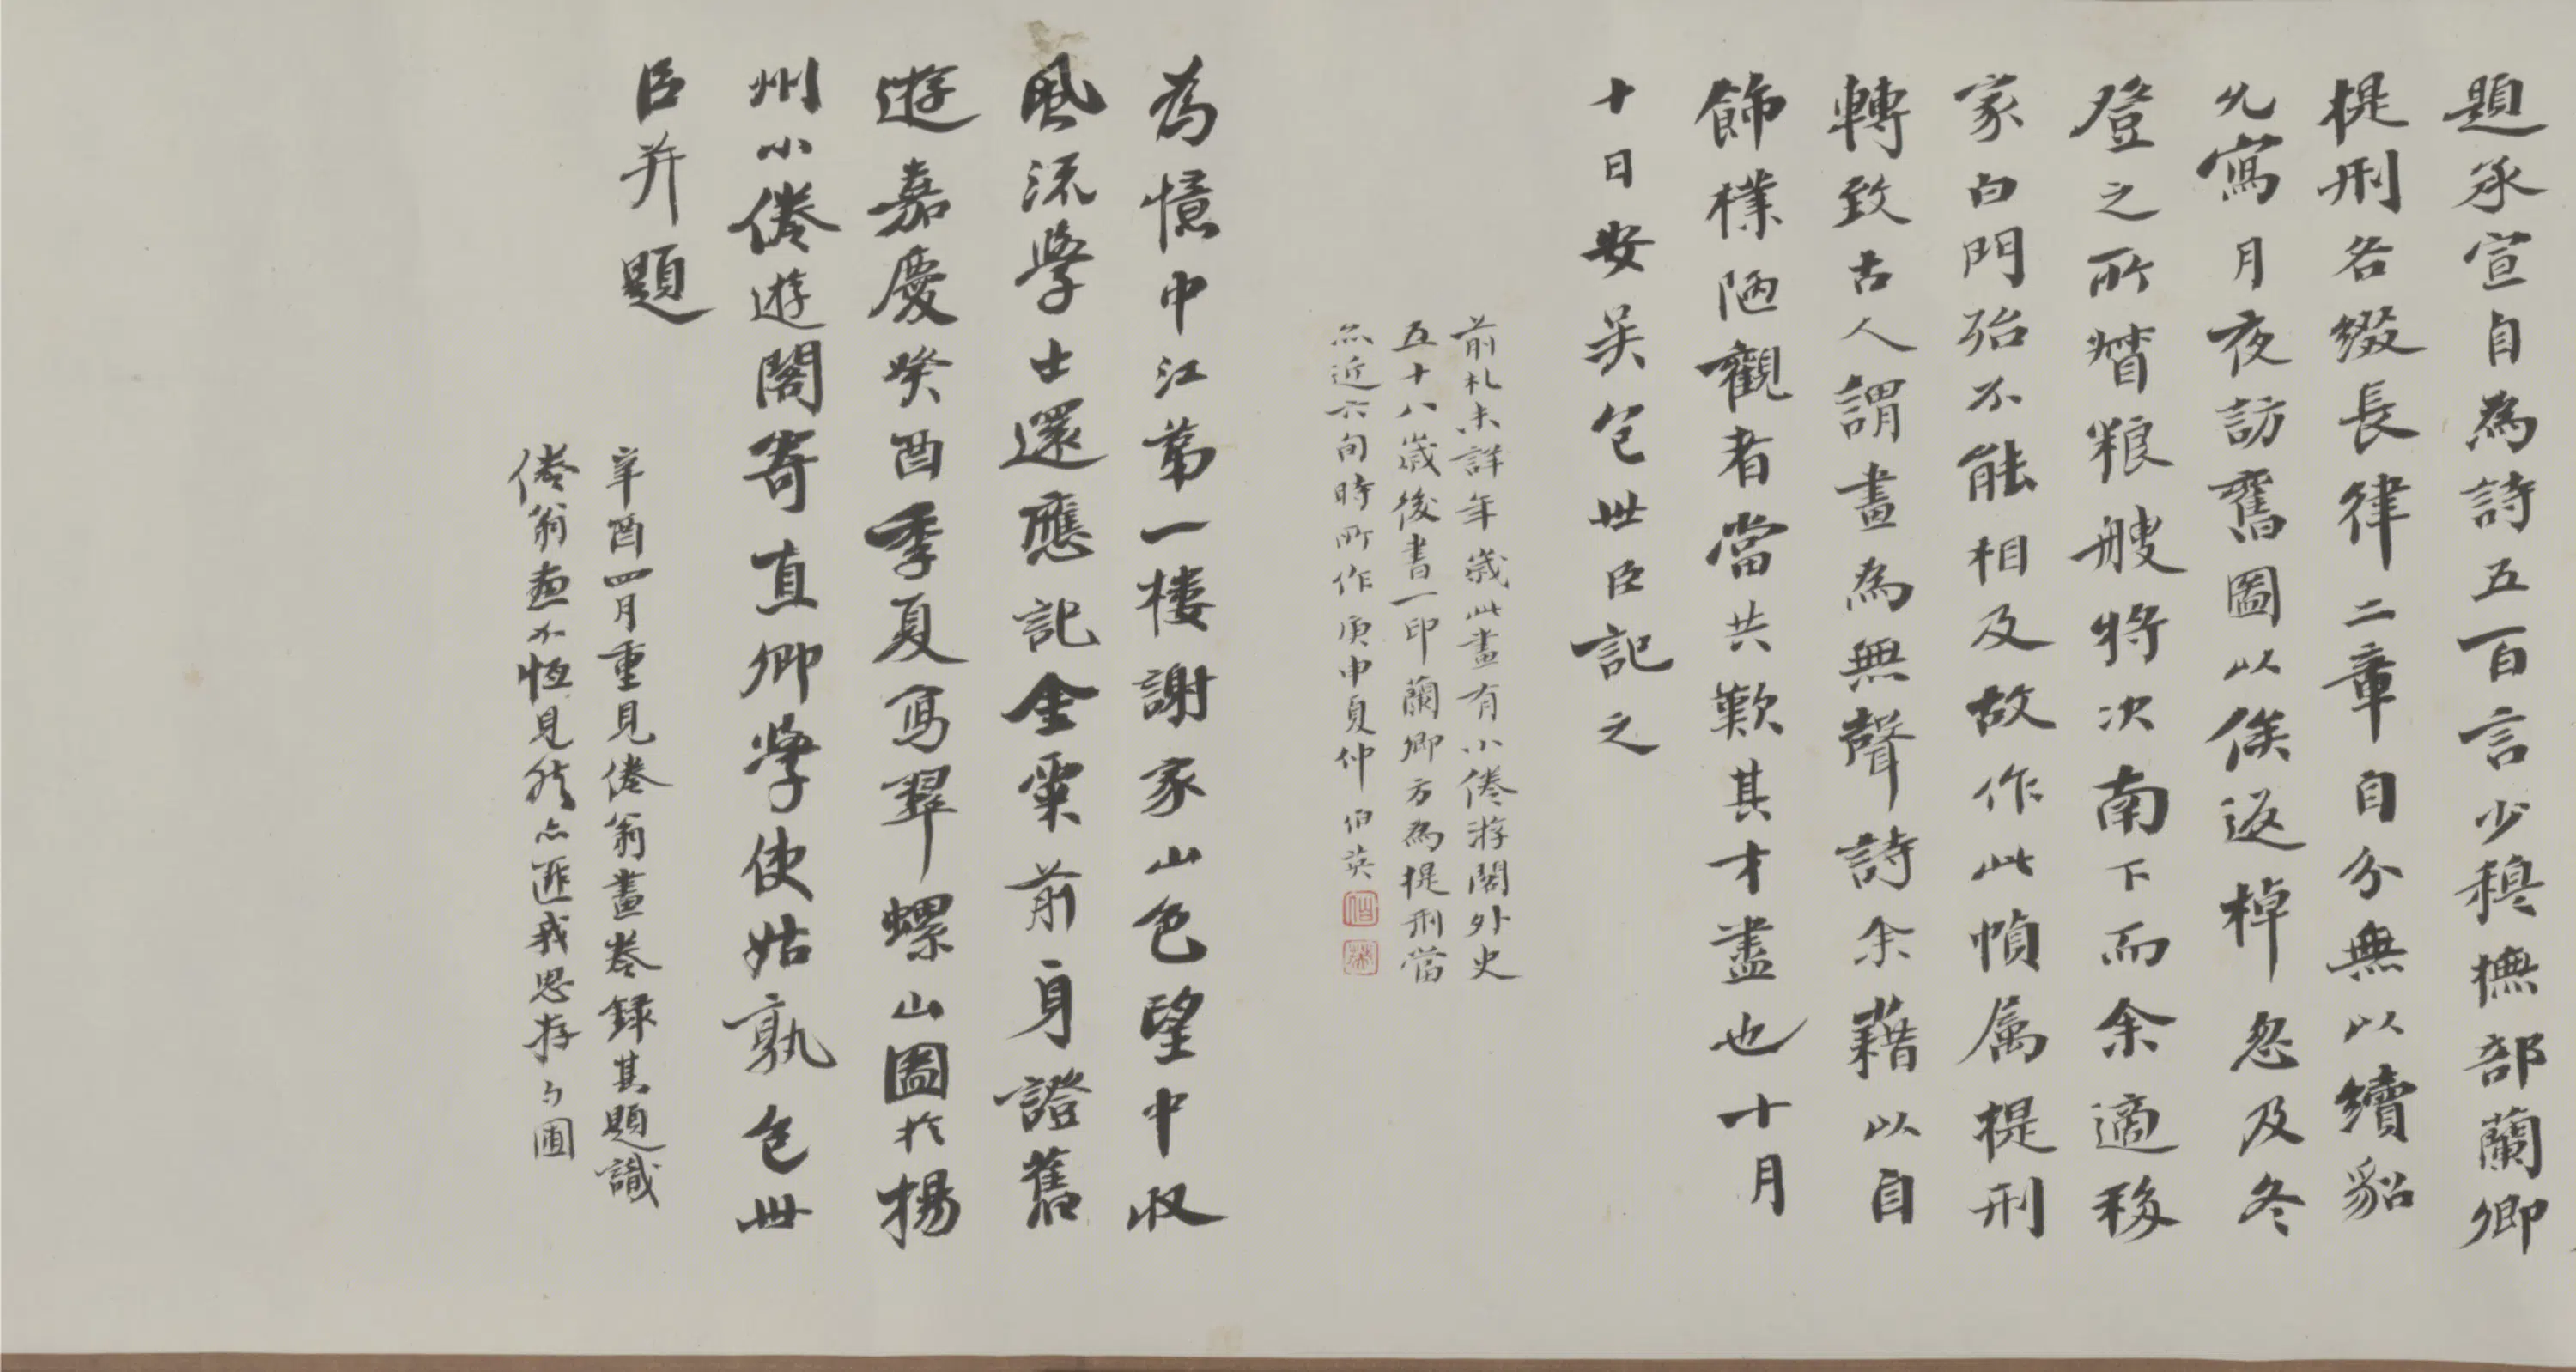 題承宣自為詩五百言少穆撫部蘭卿
提刑各綴長律二章自分無以續貂
允寫月夜訪舊圖以俟返棹忽及冬
登之所督粮艘將次南下而余適移
家白門殆不能相及故作此幀属提刑
轉致古人謂畫為無聲詩余藉以自
飾樸陋觀者當共歎其才盡也十月
十日安吴包世臣記之
前札未詳年歲此畫有小倦游閣外史
五十八歲後書一印蘭卿方為提刑當
亦近六旬時所作庚申夏仲伯英
為憶中江第一樓謝家山色望中收
風流學士還應記金粟前身證舊
遊嘉慶癸酉季夏寫翠螺山圖於揚
州小倦遊閣寄直卿學使姑孰包世
臣并題
辛酉四月重見倦翁畫卷録其題識
倦翁畫不恆見然亦匪我思存勺圃